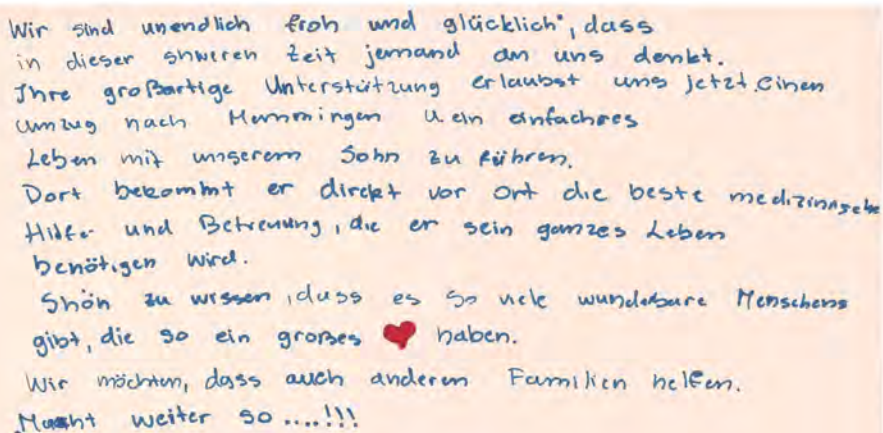 Wir sind unendlich froh und glücklich, dass
in dieser shweren Zeit jemand an uns denkt.
Ihre großartige Unterstützung erlaubst uns jetzt einen
Umzug nach Memmingen u. ein einfachres
Leben mit unserem Sohn zu führen.
Dort bekommt er direkt vor Ort die beste medizinnsche
Hilfe und Betreuung, die er sein ganzes Leben
benötigen wird.
Shön zu wissen, dass es so viele wunderbare Menschens
gibt, die so ein großes ❤ haben.
Wir möchten, dass auch anderen Familien helfen.
Macht weiter so ....!!!